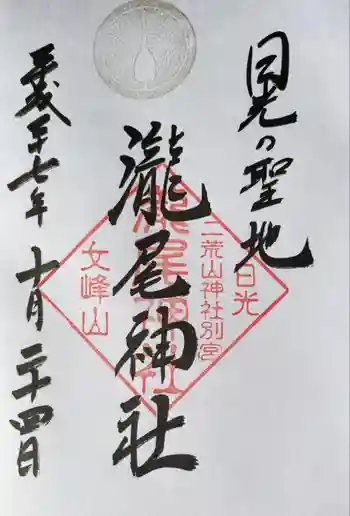 日光の聖地
瀧尾神社
平成二十七年 十月二十四日
日光
二荒山神社別宮
瀧尾神社
女峰山